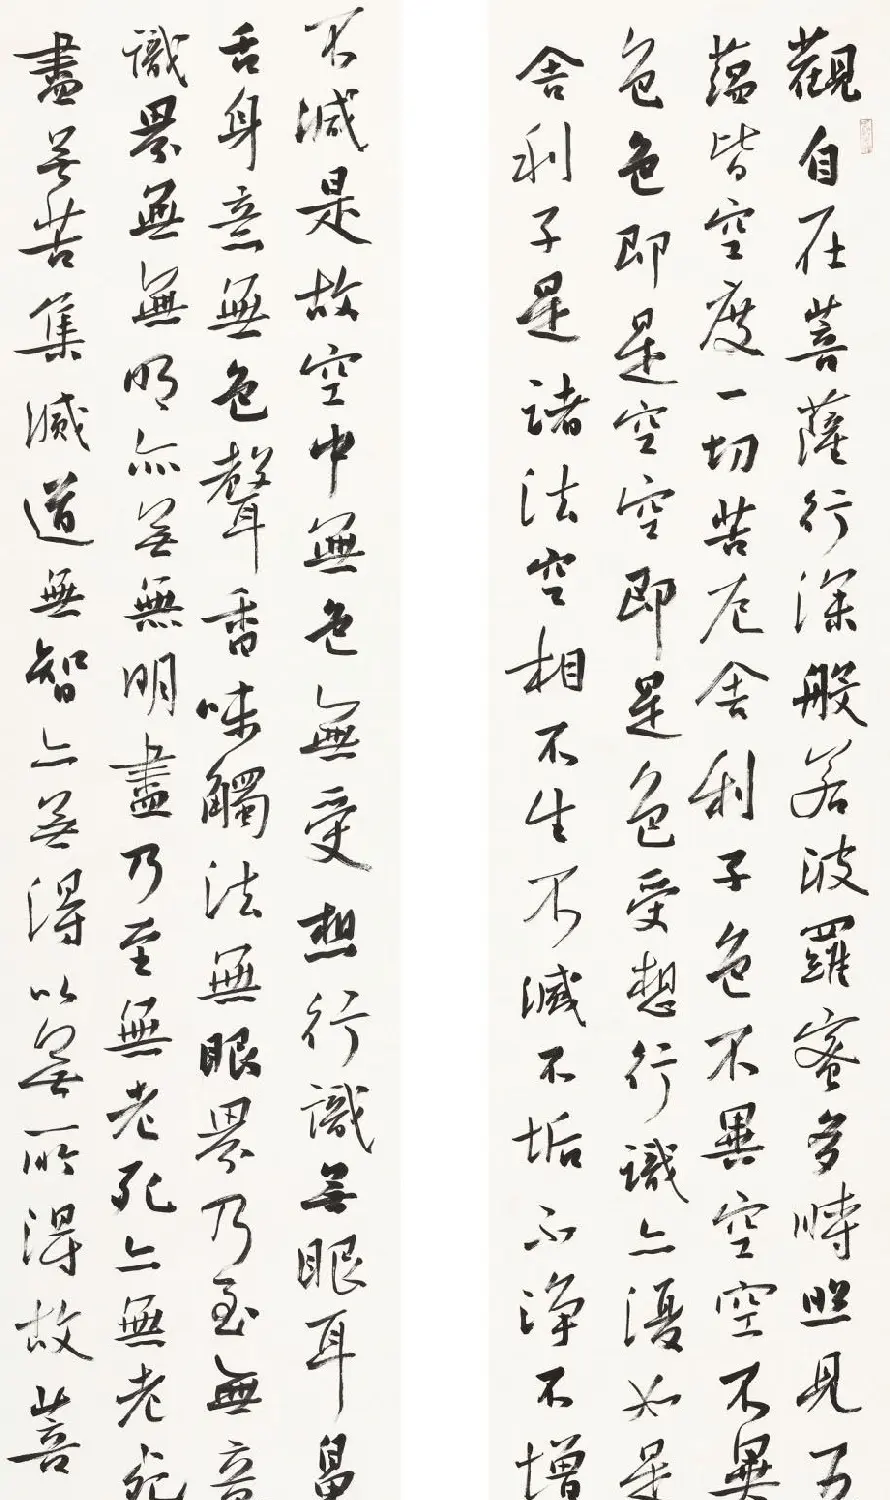 觀自在菩薩行深般若波羅蜜多時照見五
蘊皆空度一切苦厄舍利子色不異空空不異
色色即是空空即是色受想行識亦復如是
舍利子是諸法空相不生不滅不垢不淨不增
不減是故空中無色無受想行識無眼耳鼻
舌身意無色聲香味觸法無眼界乃至無意
識界無無明亦無無明盡乃至無老死亦無老死
盡無苦集滅道無智亦無得以無所得故菩